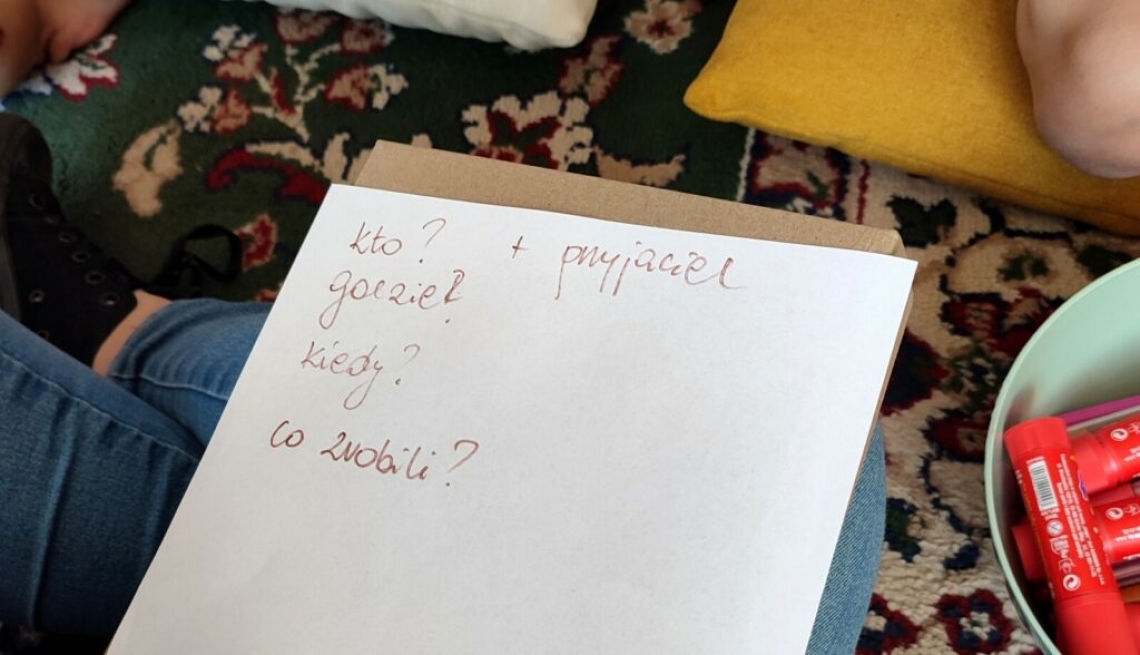 kto? + przyjaciel
gdzie?
kiedy?
co zrobili?